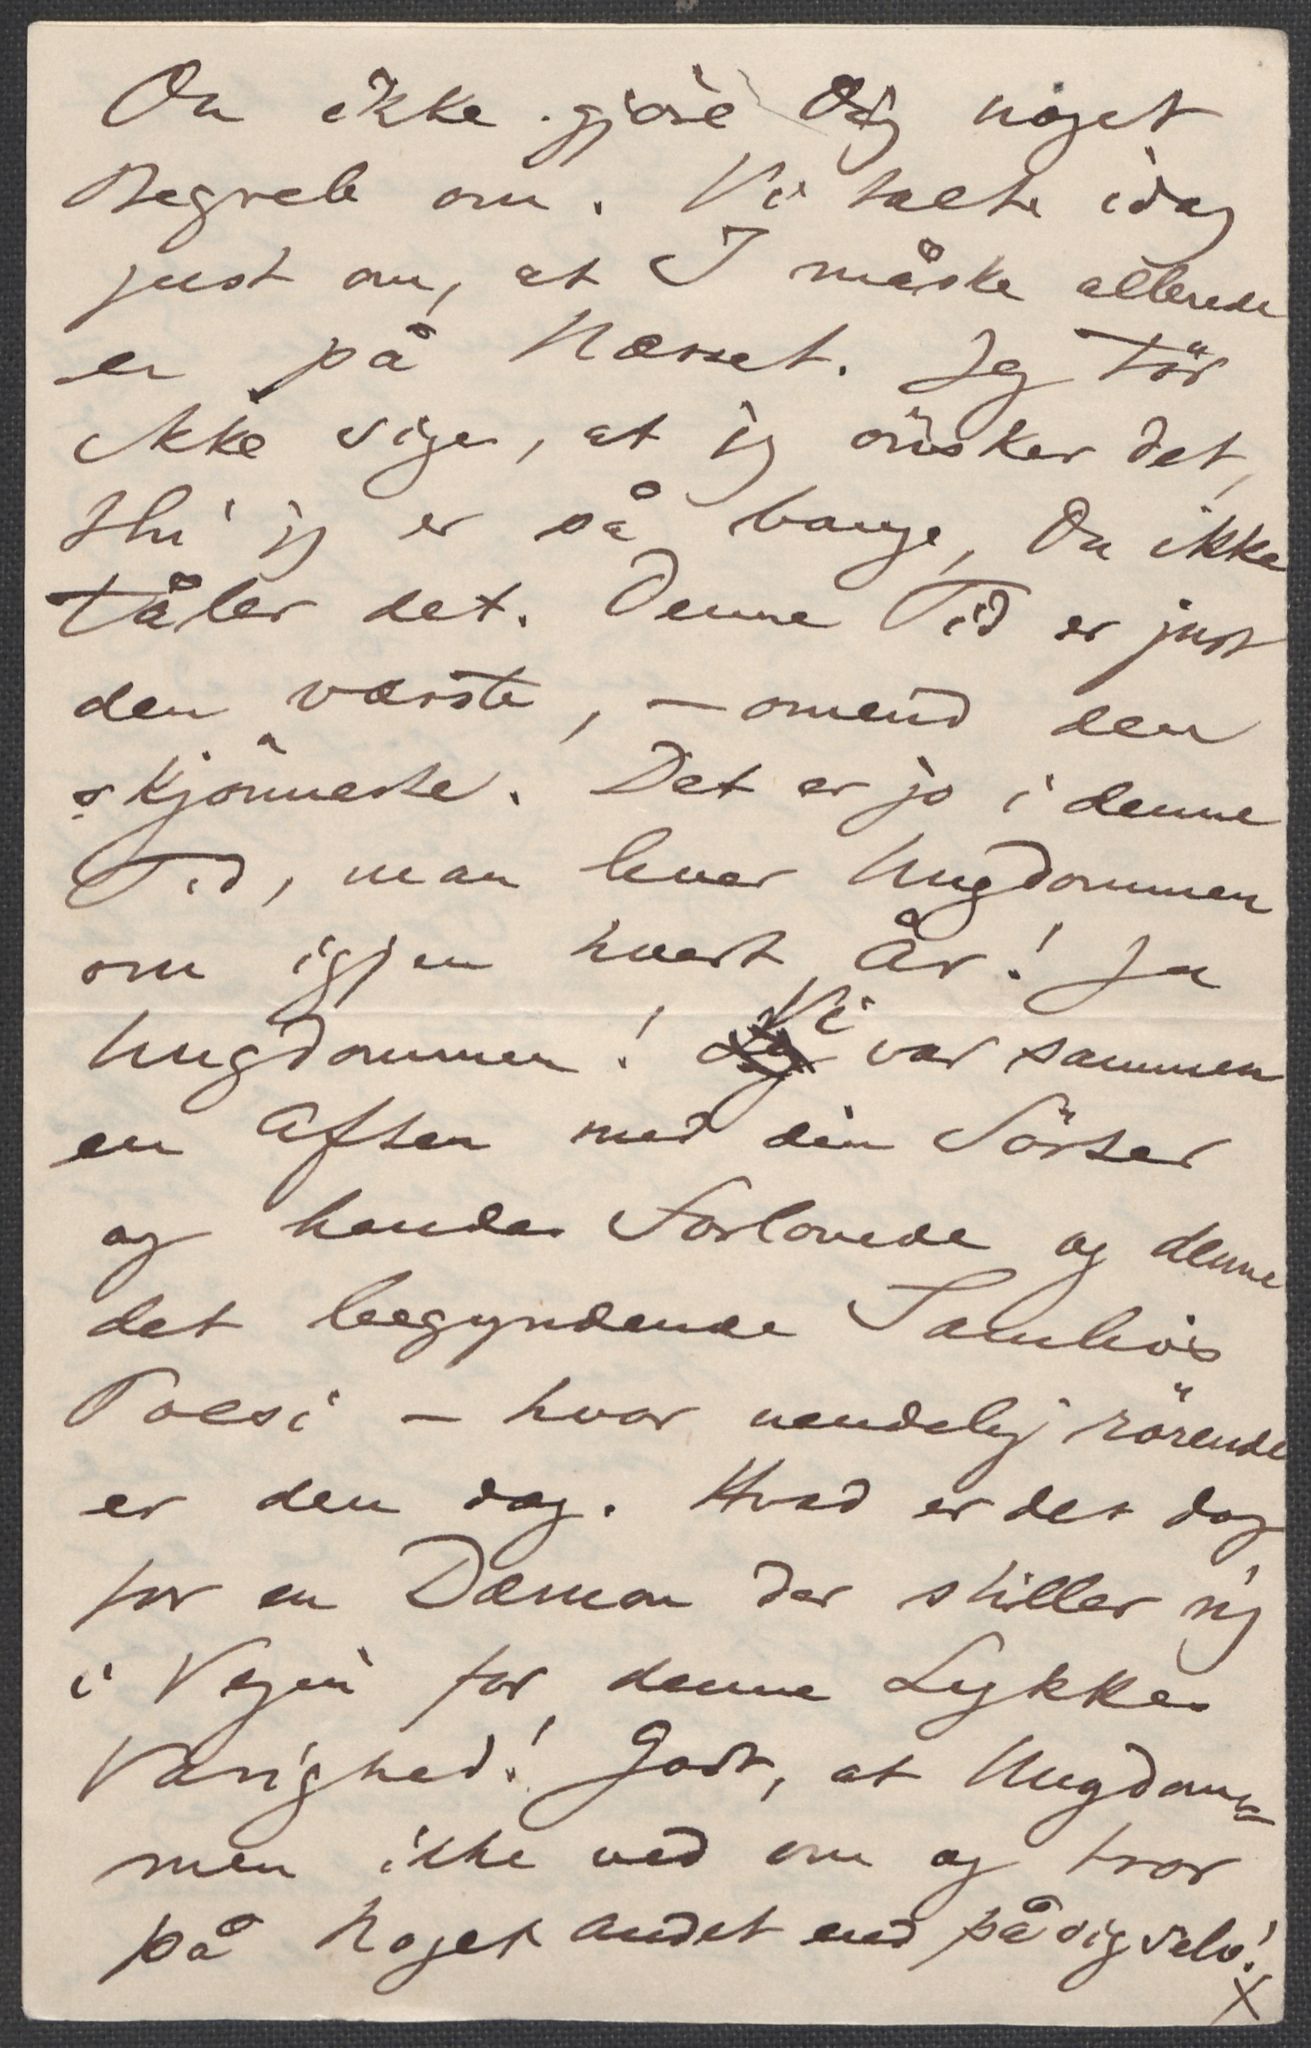 Du ikke gjøre Dig noget
Begreb om. Vi talte idag
just om, at I måske allerede
er på Næsset. Jeg tör
ikke sige, at jeg önsker det,
thi jeg er så bange, Du ikke
tåler det. Denne Tid er just
den værste, – omend den
skjönneste. Det er jo i denne
Tid, man lever Ungdommen
om igjen hvert År! Ja
Ungdommen! Vi var sammen
en Aften med din Söster
og hendes Forlovede og denne
det begyndende Samlivs
Poesi – hvor uendelig rörende
er den dog. Hvad er det dog
for en Dæmon der stiller sig
i Vejen for denne Lykkes
Varighed! Godt, at Ungdom=
men ikke ved om og tror
på Noget andet end på sig selv!
X